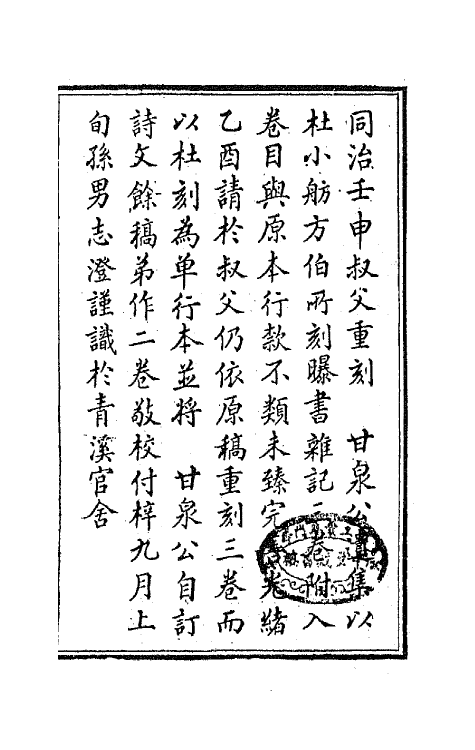 同治壬申叔父重刻　甘泉公集以
杜小舫方伯所刻曝書雜記二卷附入
卷目與原本行款不類未臻完善光緒
乙酉請於叔父仍依原稿重刻三卷而
以杜刻為单行本並將　甘泉公自訂
詩文餘稿弟作二卷敬校付梓九月上
旬孫男志澄謹識於青溪官舍